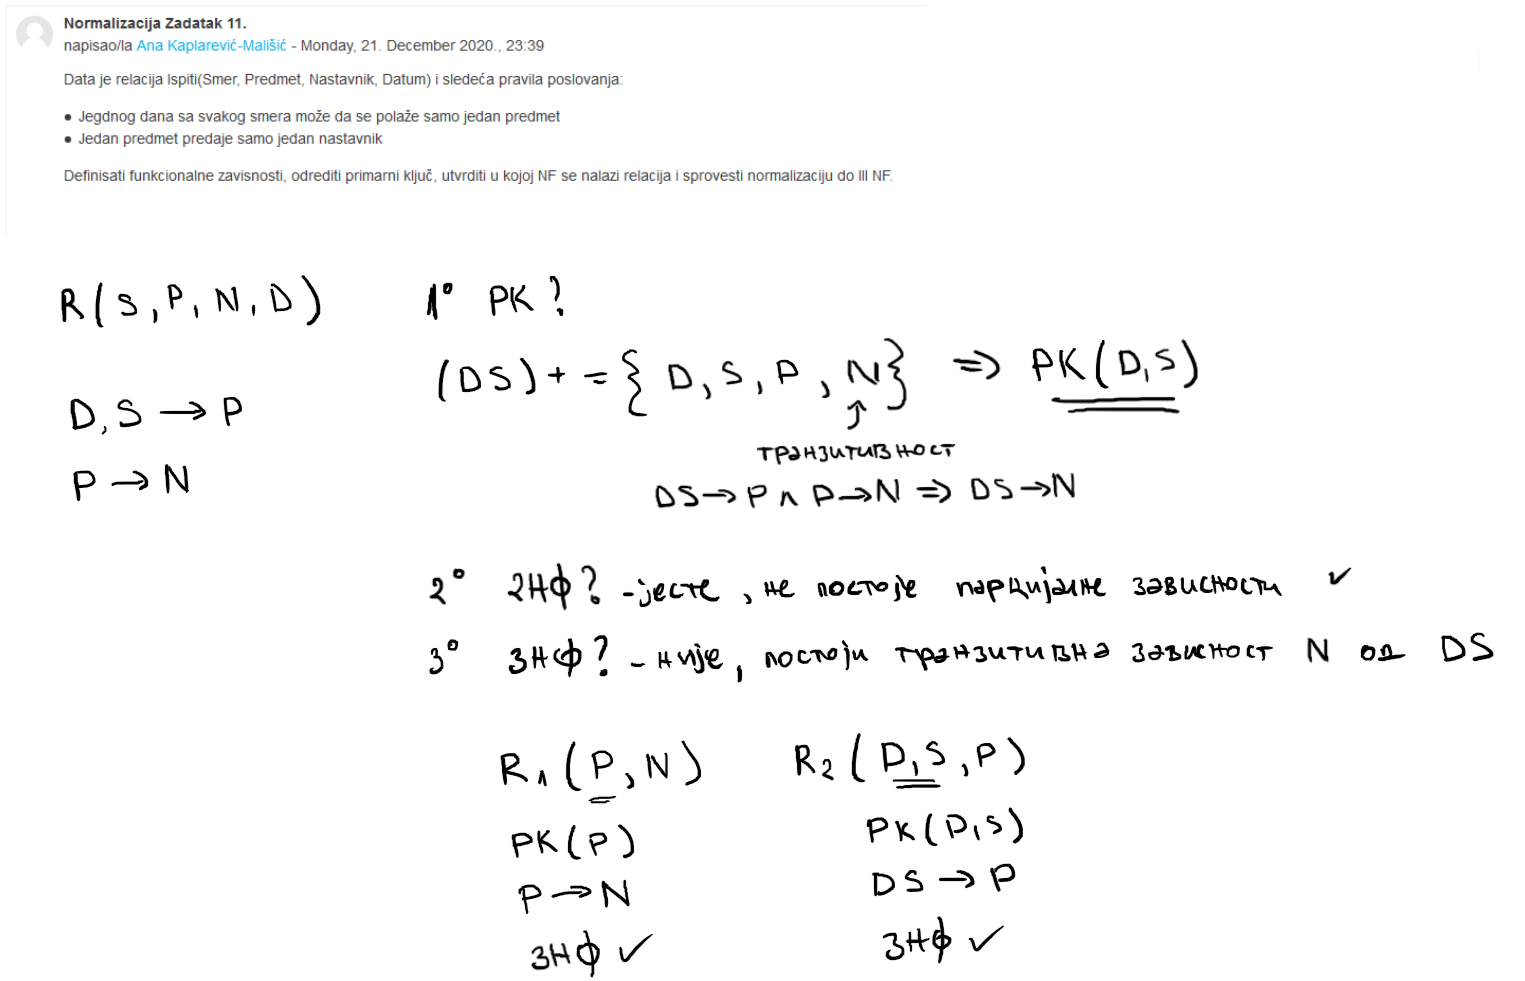 Normalizacija Zadatak 11.
napisao/la Ana Kaplarević-Mališić - Monday, 21. December 2020., 23:39
Data je relacija Ispiti(Smer, Predmet, Nastavnik, Datum) i sledeća pravila poslovanja:
• Jegdnog dana sa svakog smera može da se polaže samo jedan predmet
• Jedan predmet predaje samo jedan nastavnik
Definisati funkcionalne zavisnosti, odrediti primarni ključ, utvrditi u kojoj NF se nalazi relacija i sprovesti normalizaciju do III NF.
R(S, P, N, D)
D, S → P
P → N
1° PK?
(DS)+ = {D, S, P, N} => PK(D,S)
↑
транзитивност
DS→P ∧ P→N => DS→N
2° 2НФ? - јесте, не постоје парцијалне зависности ✓
3° 3НФ? - није, постоји транзитивна зависност N од DS
R1(P, N)
PK(P)
P→N
3НФ ✓
R2(D,S, P)
PK(D,S)
DS → P
3НФ ✓